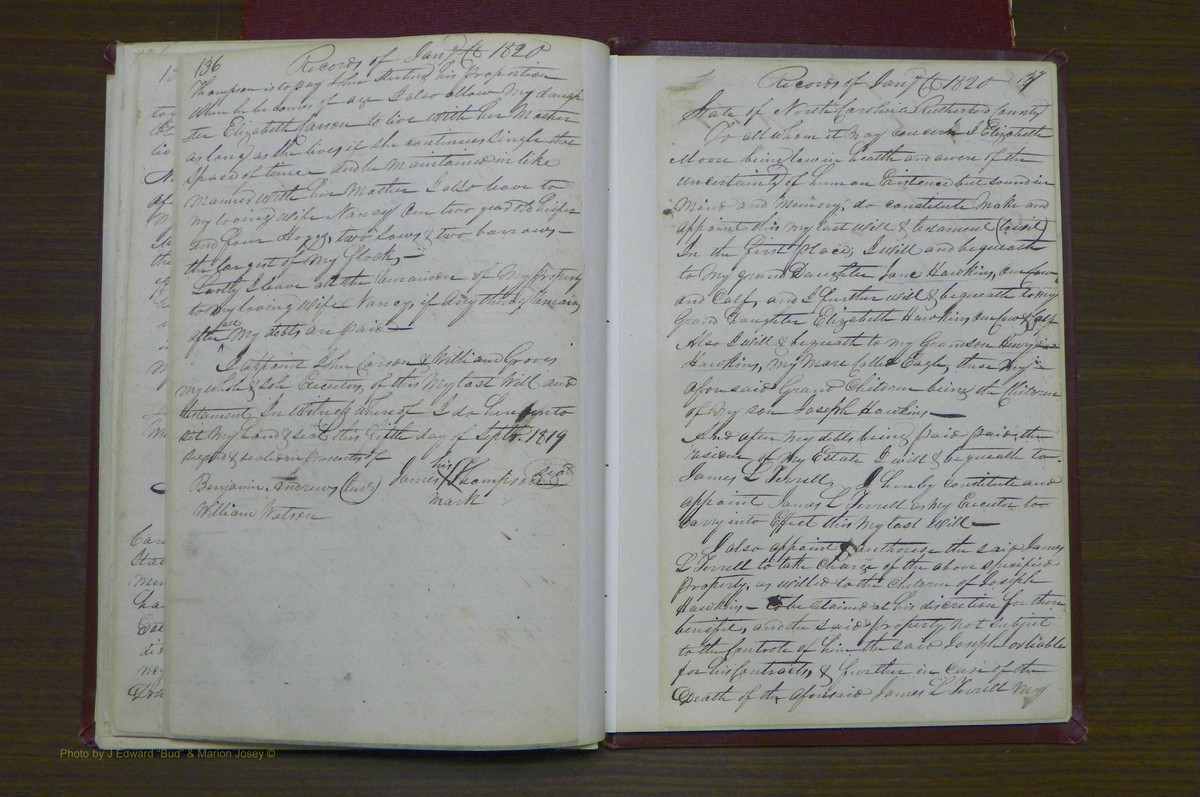 136 Records of Jany Ct 1820
Thompson is to pay John Sterling his Proportion
when he becomes of age I also allow my daugh
ter Elizabeth Carson to live with her Mother
as long as she lives if she continues Single that
Space of time and be Maintained in like
Manner with her Mother I also leave to
my loving Wife Nancy one two year old heifer
and four Hogs, two Sows & two barrows —
the largest of my flock, —
Lastly I leave all the remainder of My property
to my loving Wife Nancy, if any thing remains
after all My debts are paid —
I appoint John Carson & William Groves
my whole & Sole Executors, of this My last Will and
testament In Witness Whereof I do hereunto
set My hand & seal this fifth day of Septr. 1819
signed & sealed in presents of
Benjamin Andrews (Jurt) James his Thompson Seal
William Watson mark
Records of Jany Ct 1820 137
State of North Carolina Rutherford County
To all whom it may concern I Elizabeth
Moore being low in health and aware of the
uncertainty of human Existence but sound in
Mind and Memory, do constitute make and
appoint this my last Will & testament
In the first place, I Will and bequeath
to my grand Daughter Jane Hawkins, one Cow
and Calf, and I further Will & bequeath to my
Grand Daughter Elizabeth Hawkins, one Cow & Calf
Also I will & bequeath to my Grandson Henry
Hawkins, my Mare Called Eagle, these my
aforesaid Grand Children being the Children
of my son Joseph Hawkins —
And after my debts being paid paid, the
residue of my Estate I will & bequeath to
James L Terrell, I hereby Constitute and
appoint James L Terrell as my Executor to
Carry into Effect this My last Will —
I also appoint & authorise the said James
L Terrell to take Charge of the above specified
Property, as willed to the Children of Joseph
Hawkins — to be Claimed at his discretion for their
benefit, and the said property not subject
to the Controle of him the said Joseph or liable
for his Contracts, & further in case of the
Death of the aforesaid James L Terrell My
Photo by J Edward "Bud" & Marion Josey ©